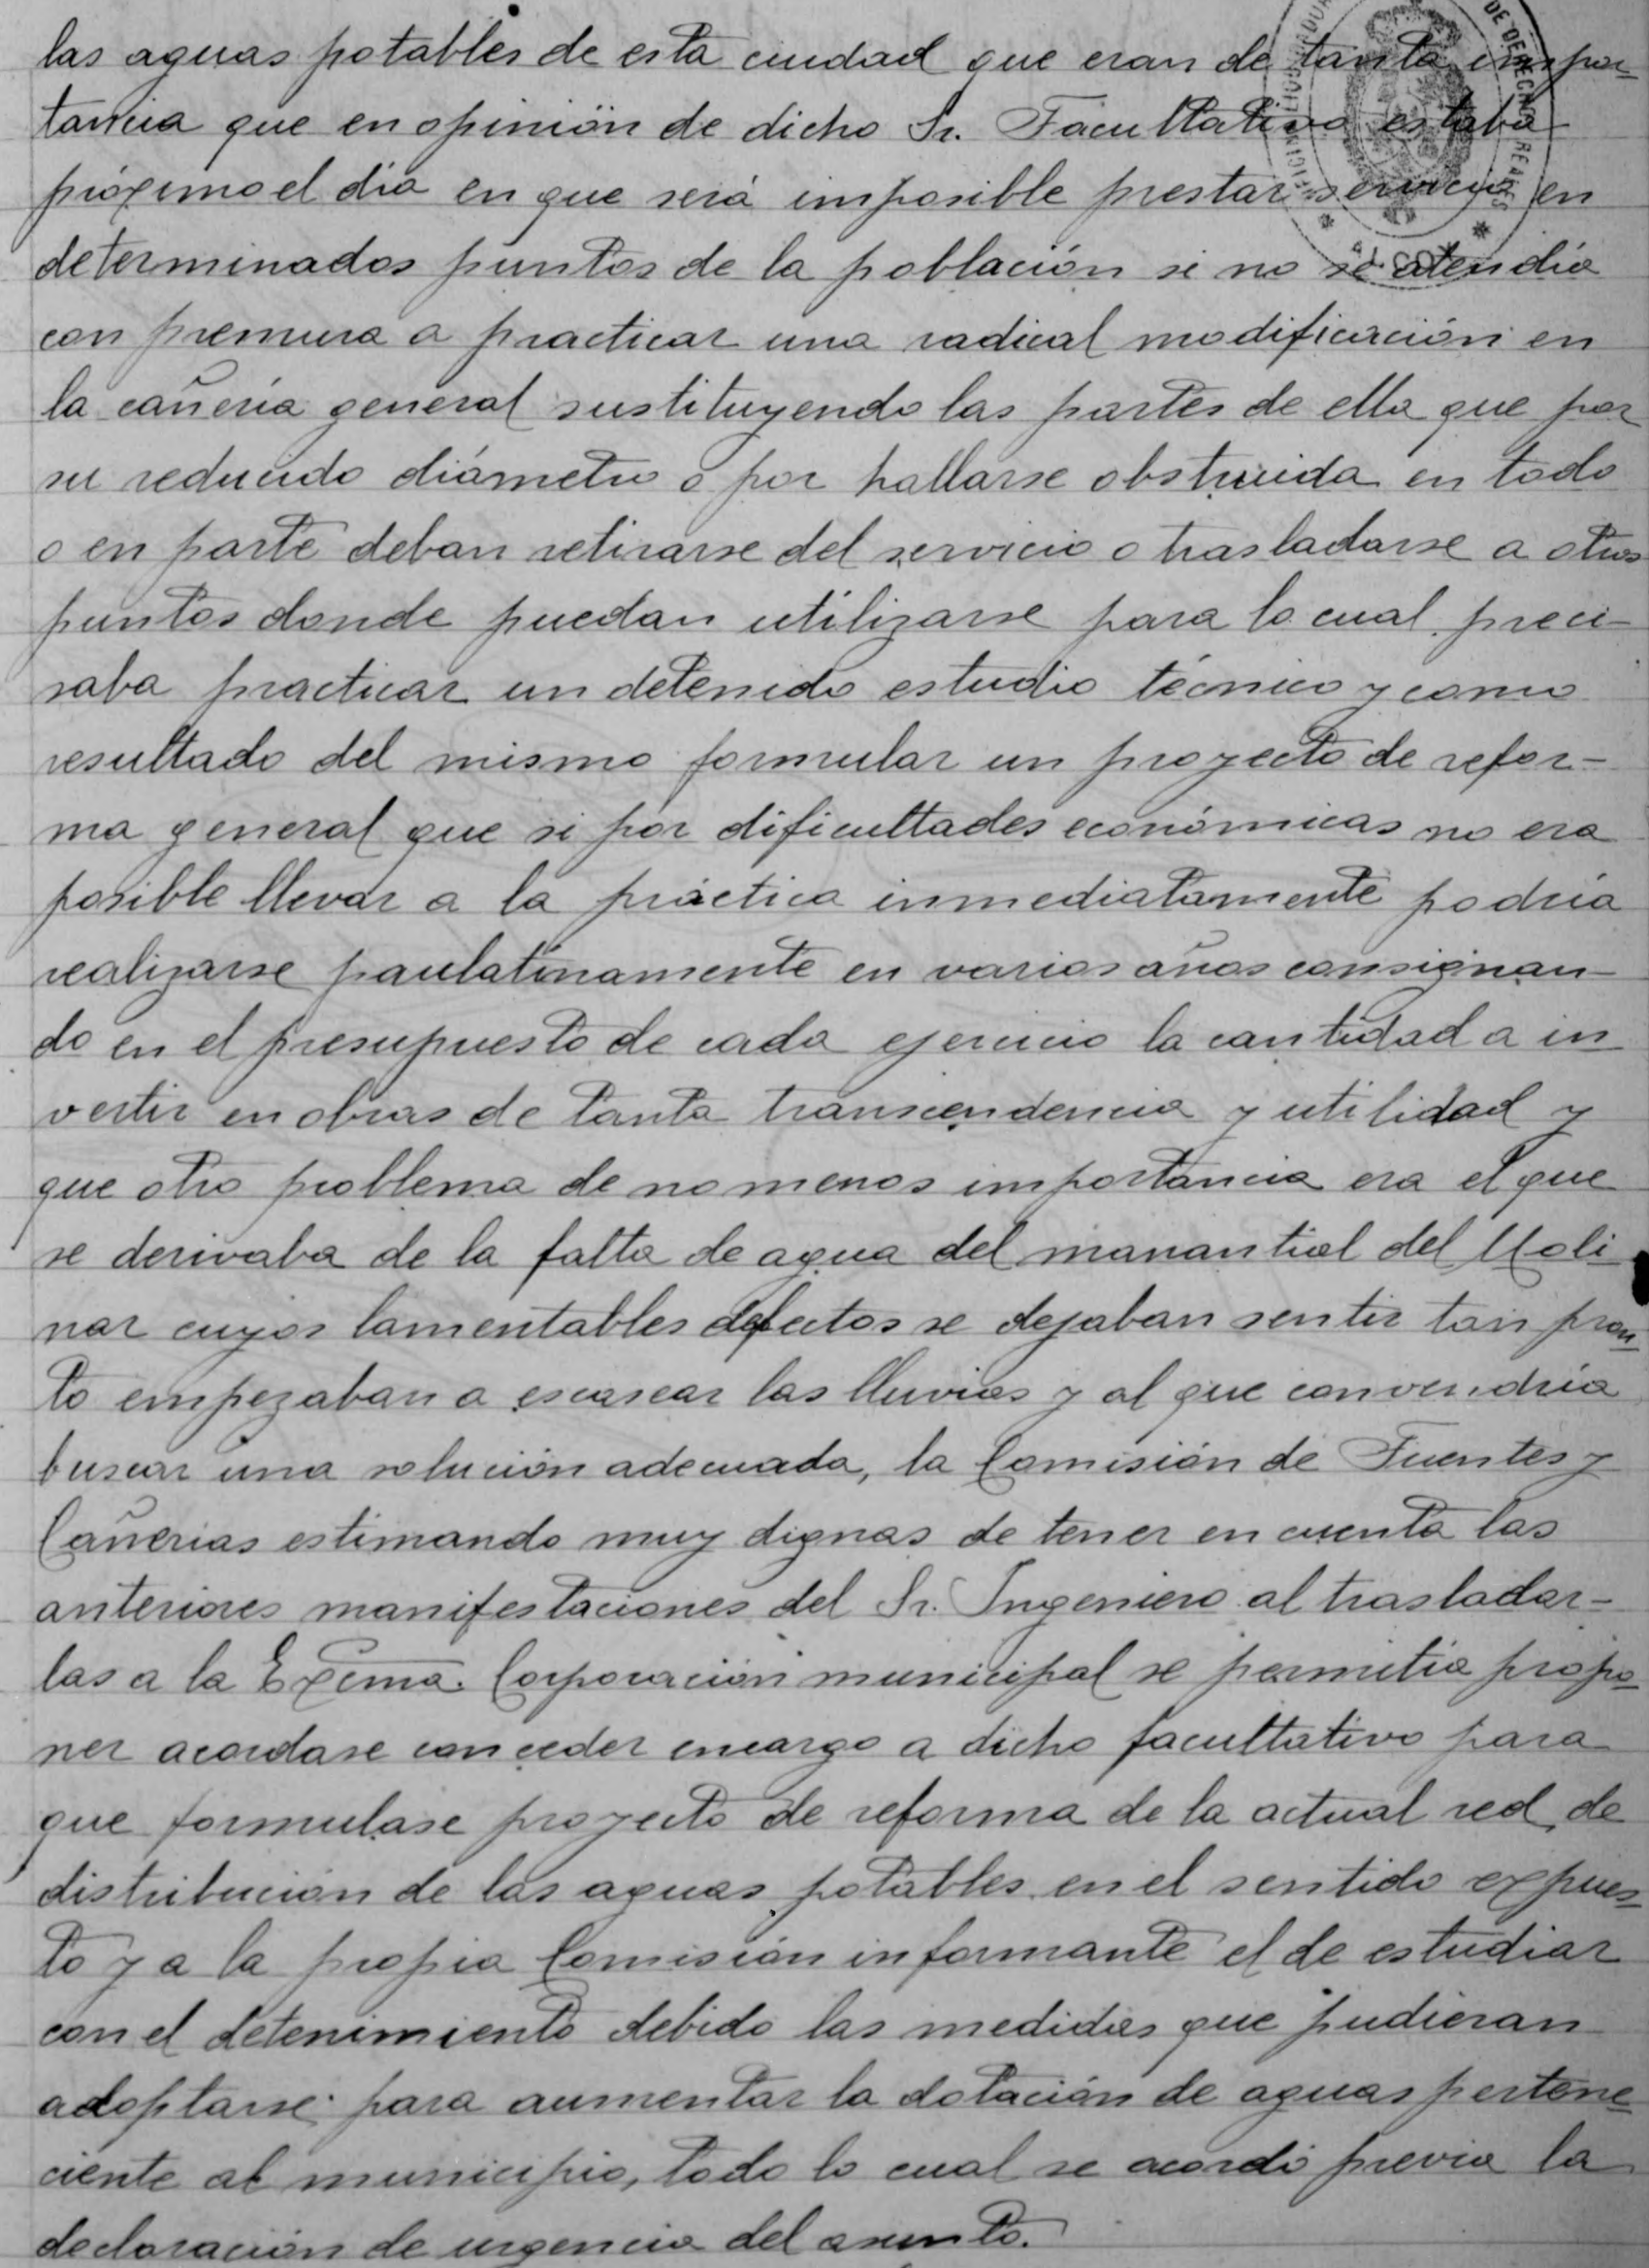 las aguas potables de esta ciudad que eran de tanta impor-
tancia que en opinión de dicho Sr. Facultativo estaba
próximo el día en que será imposible prestar servicio en
determinados puntos de la población si no se atendía
con premura a practicar una radical modificación en
la cañería general sustituyendo las partes de ella que por
su reducido diámetro o por hallarse obstruida en todo
o en parte deban retirarse del servicio o trasladarse a otros
puntos donde puedan utilizarse para lo cual preci-
saba practicar un detenido estudio técnico y como
resultado del mismo formular un proyecto de refor-
ma general que si por dificultades económicas no era
posible llevar a la práctica inmediatamente podría
realizarse paulatinamente en varios años consignan-
do en el presupuesto de cada ejercicio la cantidad a in
vertir en obras de tanta transcendencia y utilidad y
que otro problema de no menos importancia era el que
se derivaba de la falta de agua del manantial del Moli-
nar cuyos lamentables defectos se dejaban sentir tan pron-
to empezaban a escasear las lluvias y al que convendría
buscar una solución adecuada, la Comisión de Fuentes y
Cañerias estimando muy dignas de tener en cuenta las
anteriores manifestaciones del Sr. Ingeniero al trasladar-
las a la Excma. Corporación municipal se permitía propo-
ner acordase conceder encargo a dicho facultativo para
que formulase proyecto de reforma de la actual red de
distribución de las aguas potables en el sentido expues-
to y a la propia Comisión informante el de estudiar
con el detenimiento debido las medidas que pudieran
adoptarse para aumentar la dotación de aguas pertene-
ciente al municipio, todo lo cual se acordó previa la
declaración de urgencia del asunto.
DE DERECHOS REALES